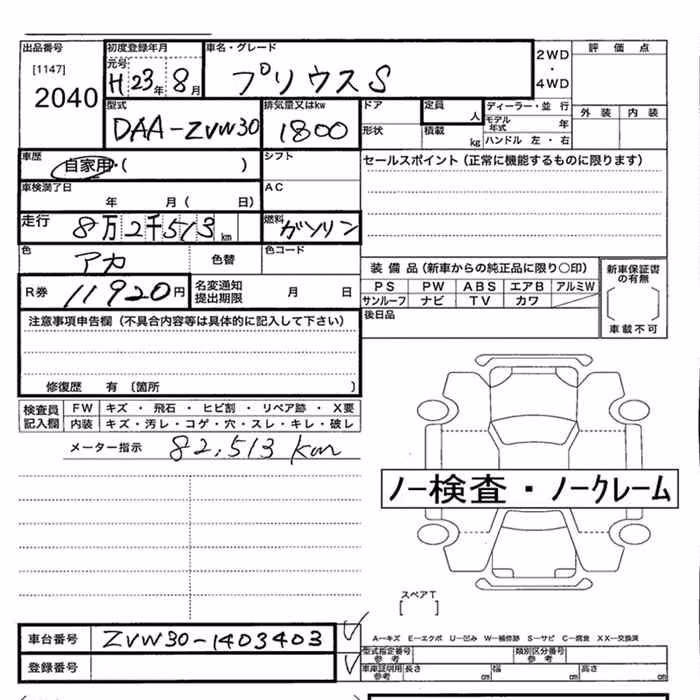 出品番号 初度登録年月 車名・グレード 2WD・4WD 評価点
[1147] 元号
2040 H 23年 8月 プリウスS
型式 排気量又はkw ドア 定員 人 ディーラー・並 行 外装 内装
DAA-ZVW30 1800 形状 積載 kg モデル年式 年
ハンドル 左・右
車歴 自家用・( ) シフト セールスポイント(正常に機能するものに限ります)
車検満了日 年 月( 日) AC
走行 8万2千513km 燃料 ガソリン
色 アカ 色替 色コード
装備品(新車からの純正品に限り〇印) 新車保証書の有無
R券 11920円 名変通知提出期限 月 日 PS PW ABS エアB アルミW
サンルーフ ナビ TV カワ
〔 〕
注意事項申告欄(不具合内容等は具体的に記入して下さい) 後日品 車載不可
修復歴 有〔箇所 〕
検査員記入欄 FW キズ・飛石・ヒビ割・リペア跡・X要
内装 キズ・汚レ・コゲ・穴・スレ・キレ・破レ
メーター指示 82,513 km
ノー検査・ノークレーム
スペアT
[ ]
車台番号 ZVW30-1403403
A―キズ E―エクボ U―凹み W―補修跡 S―サビ C―腐食 XX―交換済
型式指定番号参考 類別区分番号参考
登録番号 車庫証明用参考 長さ cm 幅 cm 高さ cm